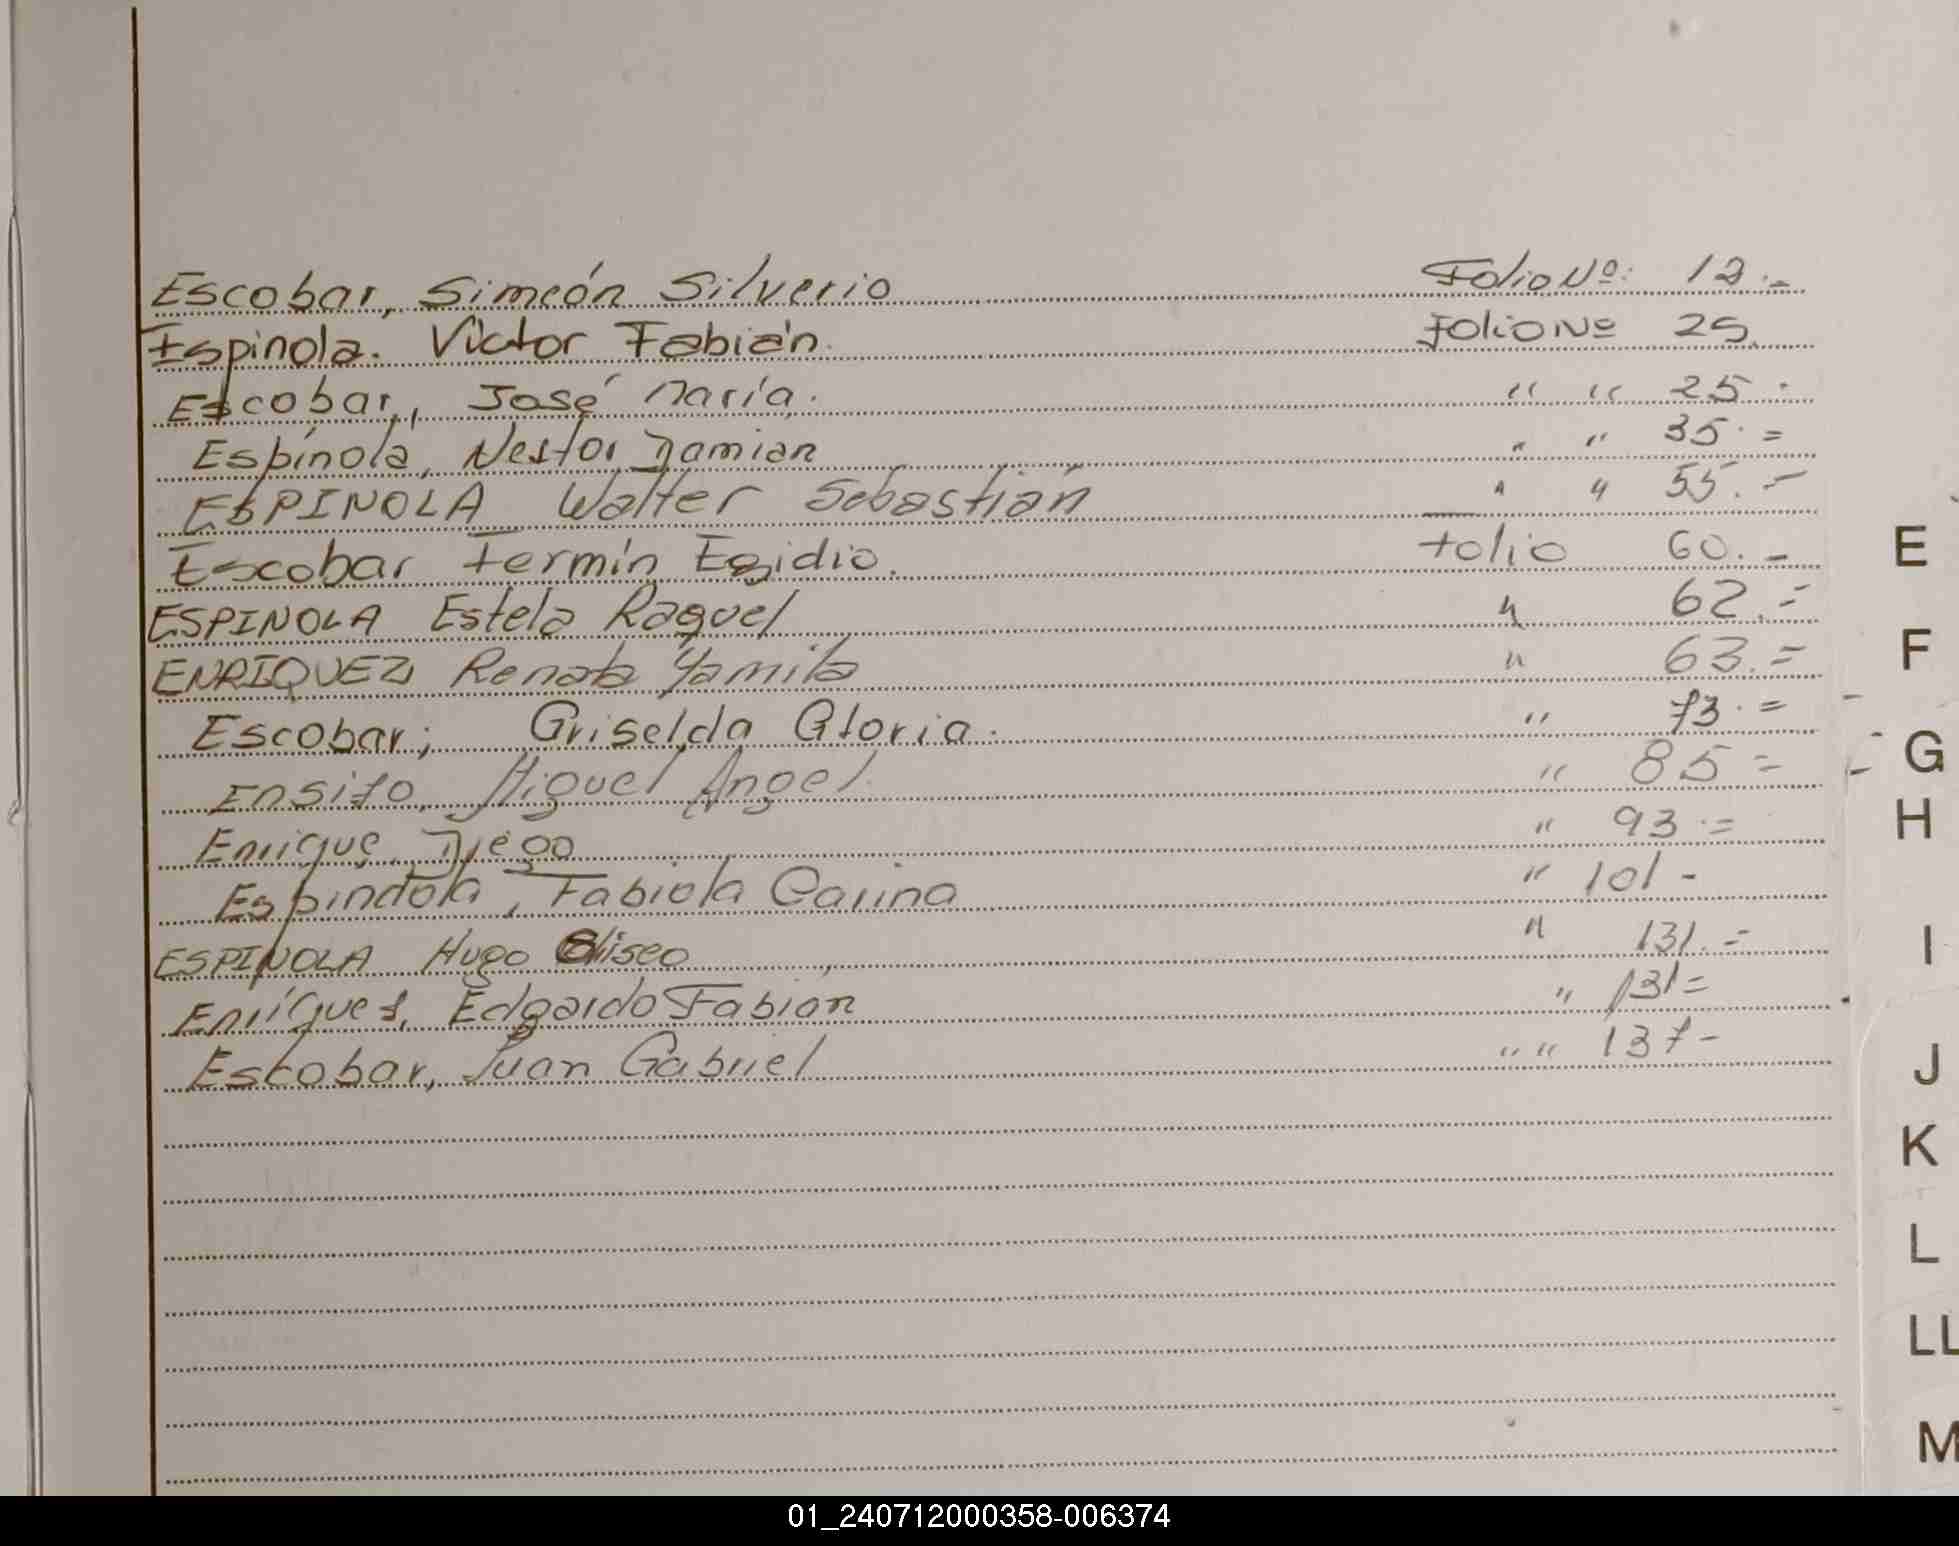 Escobar, Simeón Silverio Folio Nº: 12.-
Espinola. Victor Fabián. Folio Nº 25.
Escobar, José María. " " 25.
Espínola, Nestor Damian " " 35.=
ESPINOLA Walter Sebastián " " 55.-
Escobar Fermín Egidio. Folio 60.-
ESPINOLA Estela Raquel " 62.=
ENRIQUEZ Renata Yamila " 63.=
Escobar; Griselda Gloria. " 73.=
Ensifo, Miguel Angel. " 85=
Enrique, Diego " 93.=
Espindola, Fabiola Carina " 101-
ESPINOLA Hugo Eliseo " 131.=
Enríques, Edgardo Fabián " 131=
Escobar, Juan Gabriel " " 137-
E
F
G
H
I
J
K
L
LL
M
01_240712000358-006374